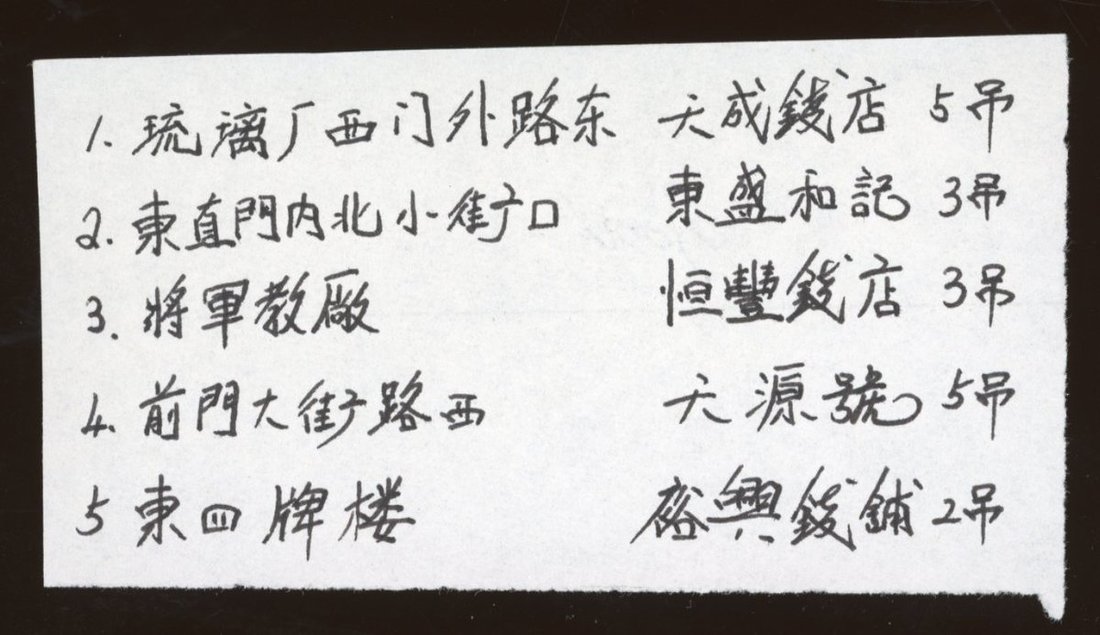 1. 琉璃厂西门外路东 天成錢店 5吊
2. 東直門内北小街口 東盛和記 3吊
3. 將軍教廠 恒豐錢店 3吊
4. 前門大街路西 天源號 5吊
5 東四牌楼 裕興錢鋪 2吊